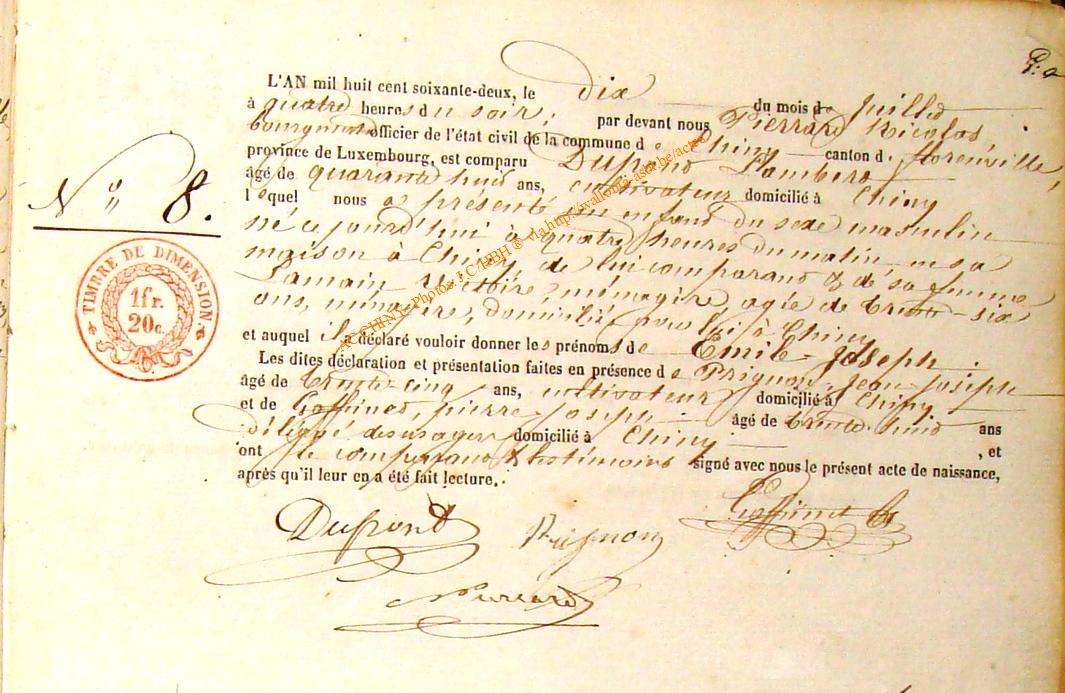 L'AN mil huit cent soixante-deux, le dix du mois de juillet
à quatre heures du soir, par devant nous Pierrard Nicolas
bourgmestre officier de l'état civil de la commune de Chiny canton de florenville,
province de Luxembourg, est comparu Dupont Lambert
âgé de quarante huit ans, cultivateur domicilié à Chiny
lequel nous a présenté un enfant du sexe masculin
né ce jourd'hui à quatre heures du matin en sa
maison à Chiny, de lui comparant & de sa femme
Lamain Victoire, ménagère, agée de trente-six
ans, ménagère, domiciliée avec lui à Chiny
et auquel il a déclaré vouloir donner les prénoms de Emile-Joseph.
Les dites déclaration et présentation faites en présence de Prignon, Jean-Joseph
âgé de trente-cinq ans, cultivateur domicilié à Chiny
et de Goffinet, pierre-joseph âgé de trente huit ans
délégué des usagers domicilié à Chiny, et
ont le comparant & les témoins signé avec nous le présent acte de naissance,
après qu'il leur en a été fait lecture.
Dupont Prignon Goffinet
Pierrard
N° 8.
TIMBRE DE DIMENSION.
1 fr.
20 c.
AC CHINY Photos JC/HBH ® via http://wallonia-asbl.be/actes